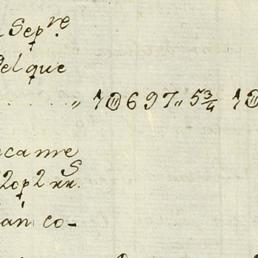 n Sepre.
Del que
. . . . . . ,, 1@697,, 5¾ 1@
camre
20p2 xxs.
an co-